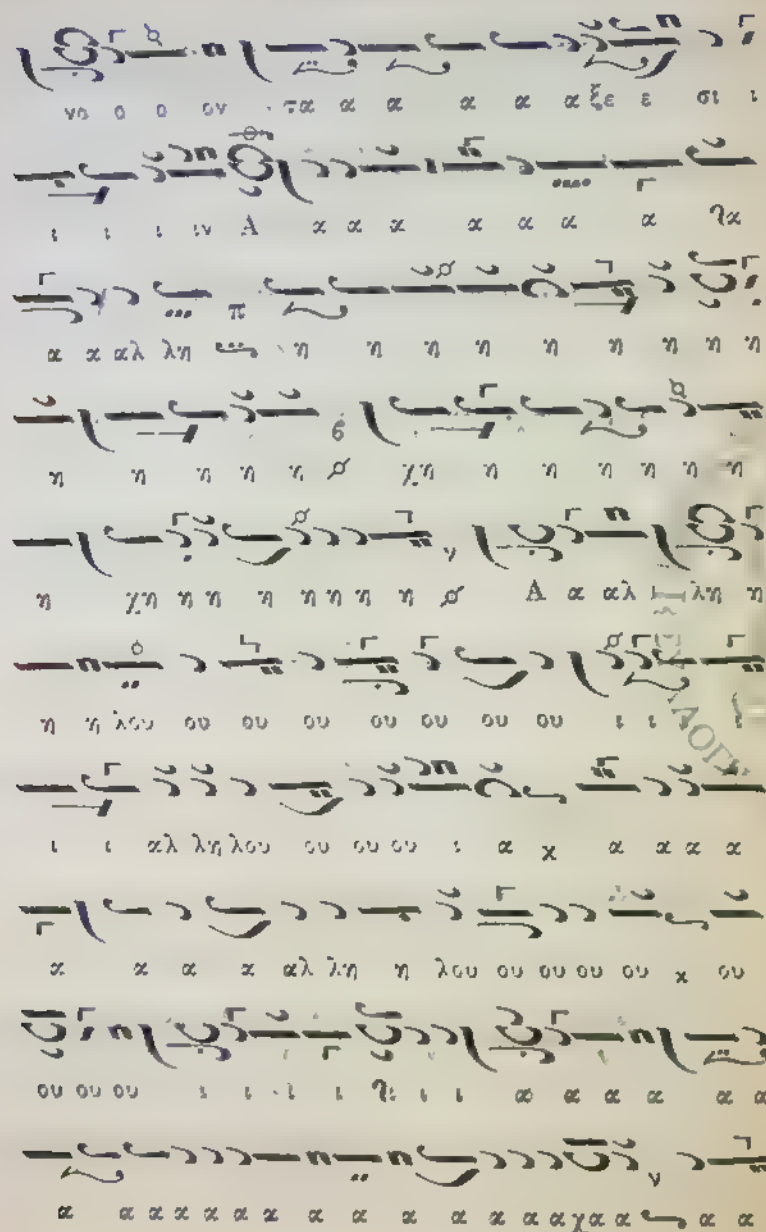 νο ο ο ον τα α α α α α ξε ε σι ι
ι ι ι ιν Α α α α α α α α
α α αλ λη η η η η η η η η η
η η η η η χη η η η η η η
η χη η η η η η η η Α α αλ λη η
η η λου ου ου ου ου ου ου ου ι ι ι ι
ι ι αλ λη λου ου ου ου ι α χ α α α α
α α α α αλ λη η λου ου ου ου ου χ ου
ου ου ου ι ι ι ι ι ι α α α α α α
α α α α α α α α α α α α α χα α α α